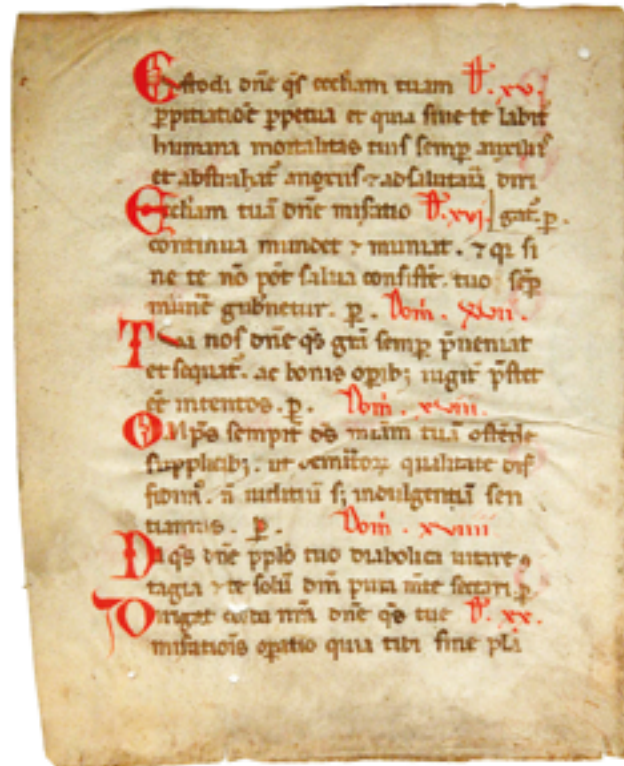 Custodi dn̄e q̄s eccl̄iam tuam D̄. xv.
ꝓpitiatiōe ꝑpetua et quia sine te labit᷑
humana mortalitas tuis semꝑ auxiliis
et abstrahat᷑ ⁊ ad salutaria diri
Eccl̄iam tuā dn̄e mis̄atio D̄. xvi. gat᷑. ꝑ.
continua mundet ⁊ muniat. ⁊ qi si
ne te nō pōt salua consistē. tuo sēꝑ
munē gub̄netur. ꝑ. Dom̄. xvii.
Tua nos dn̄e q̄s grā semꝑ p̄ueniat
et sequat᷑. ac bonis oꝑib; iugit̄ p̄stet
eē intentos. ꝑ. Dom̄. xviii.
Omp̄s sempit̄ ds̄ mīam tuā ostēde
supplicib;. ut qualitate dif
fidim᷒. n̄ iuditiū s; indulgentiā sen
tiamus. ꝑ. Dom̄. xviiii
Da q̄s dn̄e ppl̄o tuo diabolica uitare ↄ
tagia ⁊ te solū dm̄ pura m̄te sectari. ꝑ
Dirigat corda nr̄a dn̄e q̄s tue D̄. xx.
mis̄atiōis oꝑatio quia tibi sine